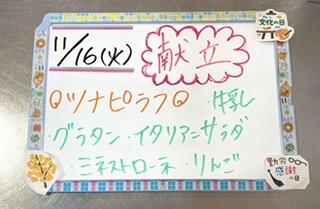 11/16(火) 献立
文化の日
ツナピラフ ・牛乳
・グラタン ・イタリアンサラダ
・ミネストローネ ・りんご
勤労感謝の日